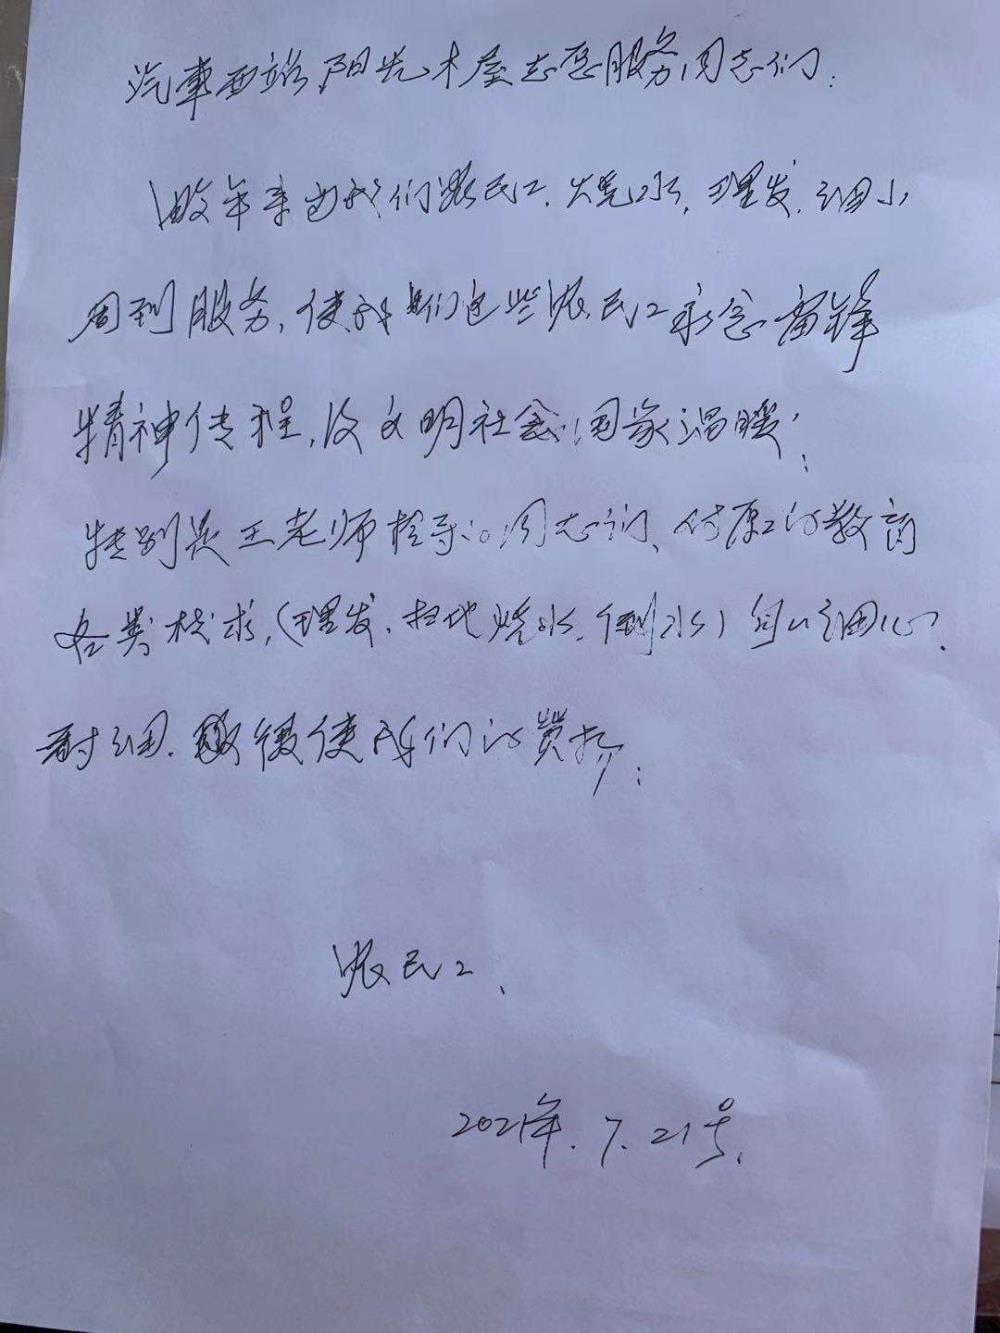 汽車西站阳光木屋志愿服务同志们:
数年来为我们农民工.烧水,理发.细小
周到服务,使我们这些农民工永念雷锋
精神传程,及文明社会国家温暖;
特别是王老师指导的同志们、教育
各类技求,(理发.扫地烧水.倒水)细心.
耐细.使我们的赞扬;
农民工、
2021年.7.21号.